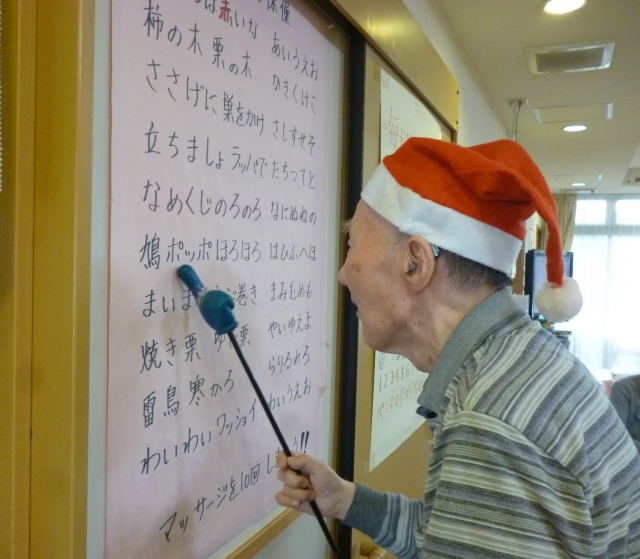 は赤いな あいうえお
柿の木 栗の木 かきくけこ
ささげに巣をかけ さしすせそ
立ちましょ ラッパで たちつてと
なめくじのろのろ なにぬねの
鳩ポッポほろほろ はひふへほ
まいま 巻き まみむめも
焼き栗 ゆ 栗 やいゆえよ
雷鳥寒かろ らりるれろ
わいわいワッショイ わいうえお
マッサージを10回 し う!!
1 2 3 4 5 6